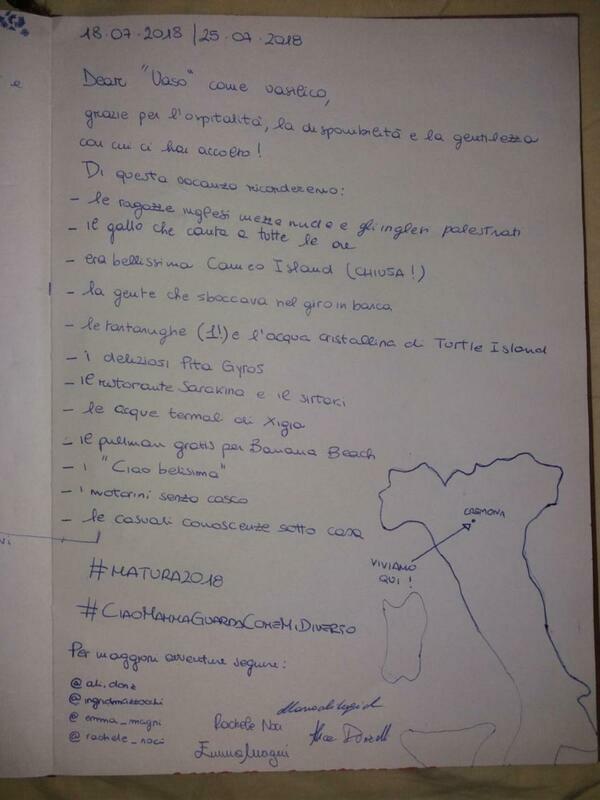 18.07.2018 | 25.07.2018
Dear "Vaso" come vasilico,
grazie per l'ospitalità, la disponibilità e la gentilezza
con cui ci hai accolto!
Di questa vacanza ricorderemo:
- le ragazze inglesi mezze nude e gli inglesi palestrati
- il gallo che canta a tutte le ore
- era bellissima Cameo Island (CHIUSA!)
- la gente che sboccava nel giro in barca
- le tartarughe (1!) e l'acqua cristallina di Turtle Island
- i deliziosi Pita Gyros
- il ristorante Sarakina e il sirtaki
- le acque termali di Xigia
- il pullman gratis per Banana Beach
- i "Ciao belisima"
- i motorini senza casco
- le casuali conoscenze sotto casa
#MATURA2018
#CIAOMAMMAGUARDACOMEMIDIVERTO
Per maggiori avventure seguire:
@ali.donz
@ingridmazzocchi
@emma_magni
@rachele_noci
Rachele Noci
Emma Magni
CREMONA
VIVIAMO
QUI!
e
vi